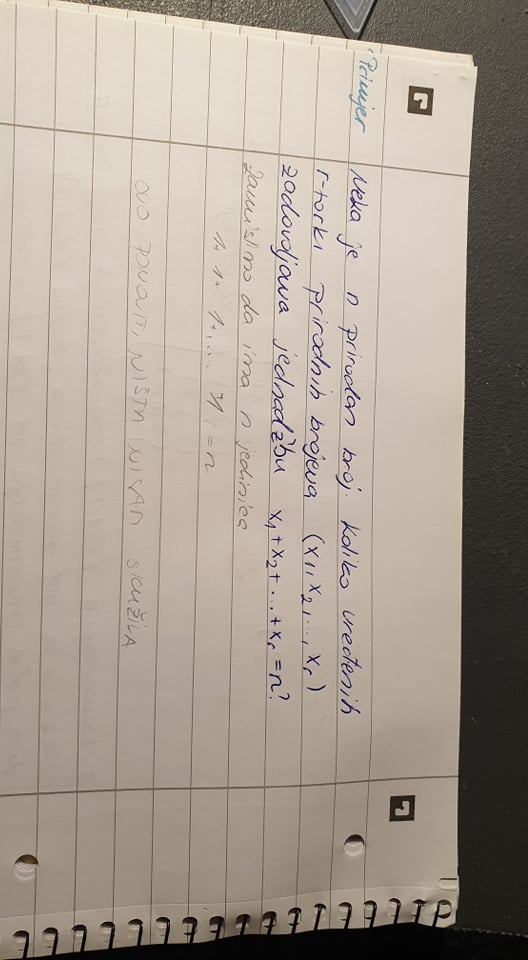 Primjer Neka je n prirodan broj. Koliko uređenih
r-torki prirodnih brojeva (x₁, x₂, ..., xᵣ)
zadovoljava jednadžbu x₁+x₂+...+xᵣ=n?
Zamislimo da ima n jedinica
1, 1, 1, ... 1, = n
OVO PONOVIT, NIŠTA NISAM SKUŽILA